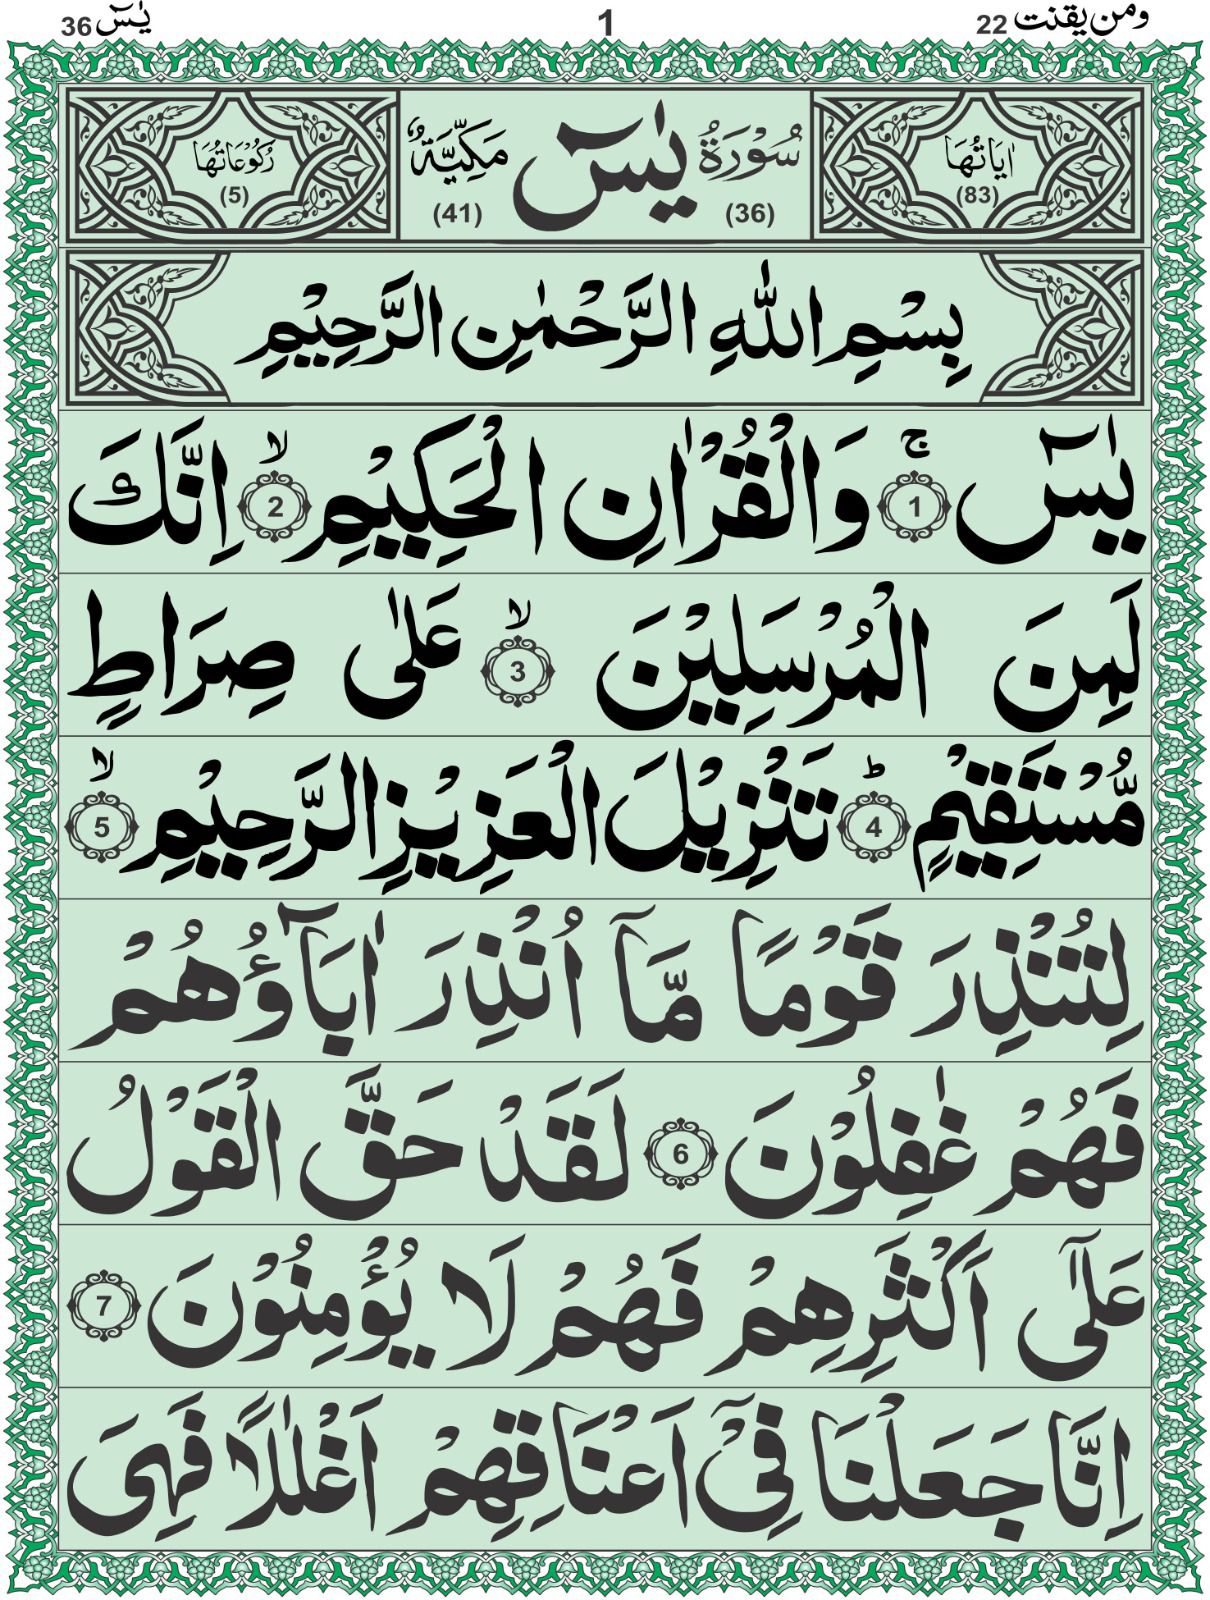 ومن يقنت 22 1 يٰسٓ 36
اٰيَاتُهَا (83) سُوْرَةُ يٰسٓ (36) مَكِّيَّةٌ (41) رُكُوْعَاتُهَا (5)
بِسْمِ اللّٰهِ الرَّحْمٰنِ الرَّحِيْمِ
يٰسٓ ۚ 1 وَالْقُرْاٰنِ الْحَكِيْمِ ۙ 2 اِنَّكَ
لَمِنَ الْمُرْسَلِيْنَ ۙ 3 عَلٰى صِرَاطٍ
مُّسْتَقِيْمٍ ؕ 4 تَنْزِيْلَ الْعَزِيْزِ الرَّحِيْمِ ۙ 5
لِتُنْذِرَ قَوْمًا مَّاۤ اُنْذِرَ اٰبَآؤُهُمْ
فَهُمْ غٰفِلُوْنَ 6 لَقَدْ حَقَّ الْقَوْلُ
عَلٰۤى اَكْثَرِهِمْ فَهُمْ لَا يُؤْمِنُوْنَ 7
اِنَّا جَعَلْنَا فِيْۤ اَعْنَاقِهِمْ اَغْلٰلًا فَهِيَ